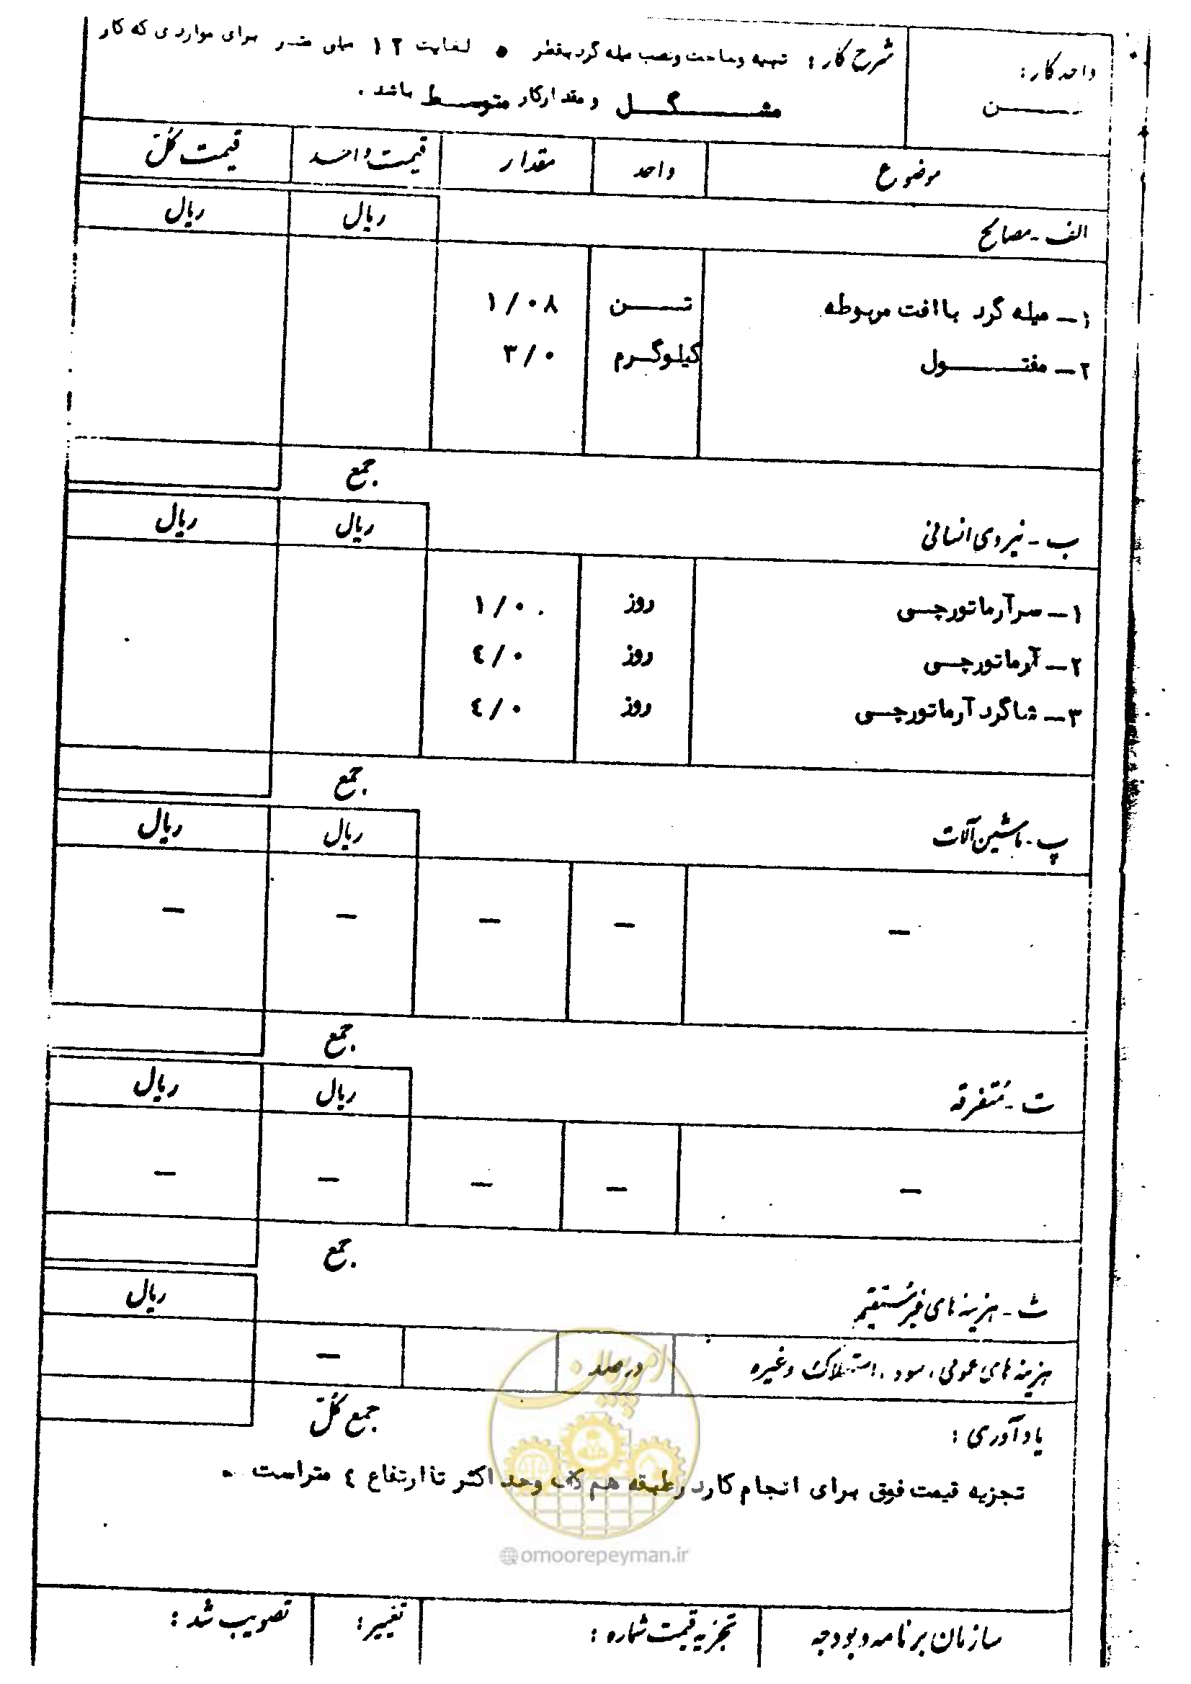 واحد کار :
تــــن
شرح کار : تهیه وساخت ونصب میله گرد بقطر ۵ لغایت ۱۲ میلی متر برای مواردی که کار
مشــــگــــل ومقدارکار متوســـط باشد .
موضوع واحد مقدار قیمت واحد قیمت کلّ
الف - مصالح ریال ریال
۱ـ میله گرد باافت مربوطه تــــن ۱/۰۸
۲ـ مفتــــول کیلوگرم ۳/۰
جمع
ب - نیروی انسانی ریال ریال
۱ـ سرآرماتورچی روز ۱/۰
۲ـ آرماتورچی روز ٤/۰
۳ـ شاگرد آرماتورچی روز ٤/۰
جمع
پ - ماشین آلات ریال ریال
ـ ـ ـ ـ ـ
جمع
ت - مُتفرقه ریال ریال
ـ ـ ـ ـ ـ
جمع
ث - هزینه های غیرمُستقیم ریال
هزینه های عمومی ، سود ، استهلاک وغیره درصد ـ
جمع کلّ
یادآوری :
تجزیه قیمت فوق برای انجام کاردرطبقه هم کف وحداکثر تاارتفاع ٤ متراست .
امور پیمان
@omoorepeyman.ir
سازمان برنامه وبودجه تجزیه قیمت شماره : تغییر : تصویب شد :